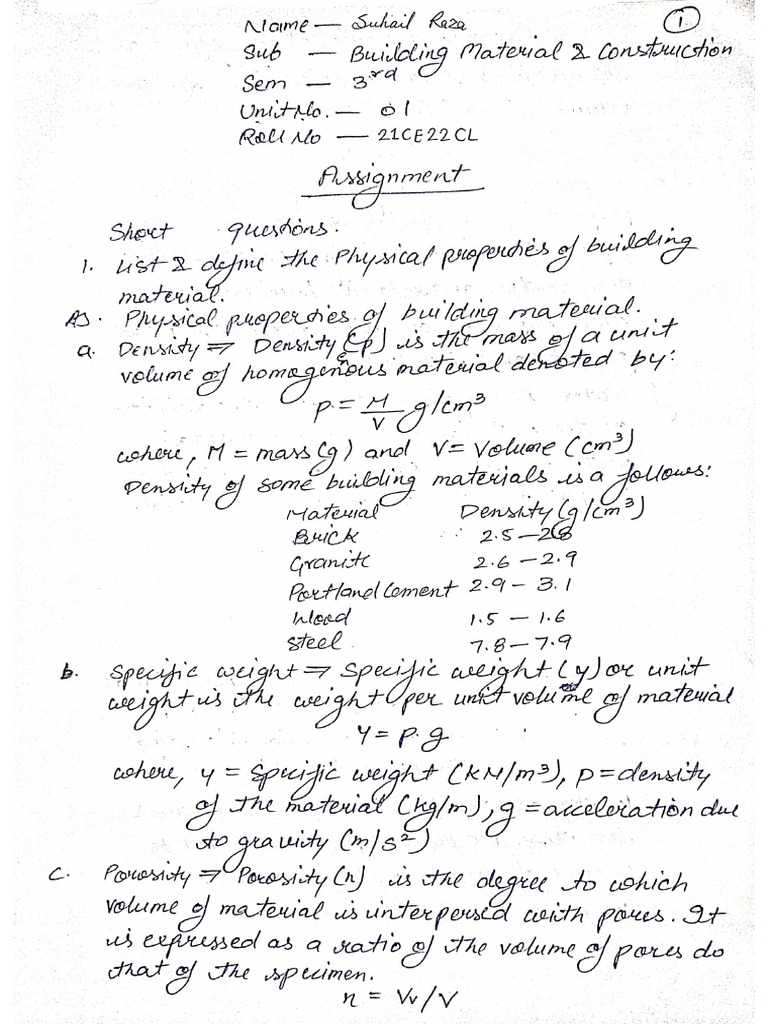 1
Name — Suhail Raza
Sub — Building Material & Construction
Sem — 3rd
Unit No. — 01
Roll No — 21CE22CL
Assignment
Short questions.
1. List & define the Physical properties of building
material.
As. Physical properties of building material.
a. Density ⇒ Density (p) is the mass of a unit
volume of homogenous material denoted by:
p = M/V g/cm³
where, M = mass (g) and V = Volume (cm³)
Density of some building materials is a follows:
Material Density (g/cm³)
Brick 2.5 — 2.8
Granite 2.6 — 2.9
Portland Cement 2.9 — 3.1
Wood 1.5 — 1.6
Steel 7.8 — 7.9
b. Specific weight ⇒ Specific weight (y) or unit
weight is the weight per unit volume of material
y = p. g
where, y = Specific weight (KN/m³), p = density
of the material (kg/m), g = acceleration due
to gravity (m/s²)
C. Porosity ⇒ Porosity (n) is the degree to which
volume of material is interpersed with pores. It
is expressed as a ratio of the volume of pores do
that of the specimen.
n = Vv/V